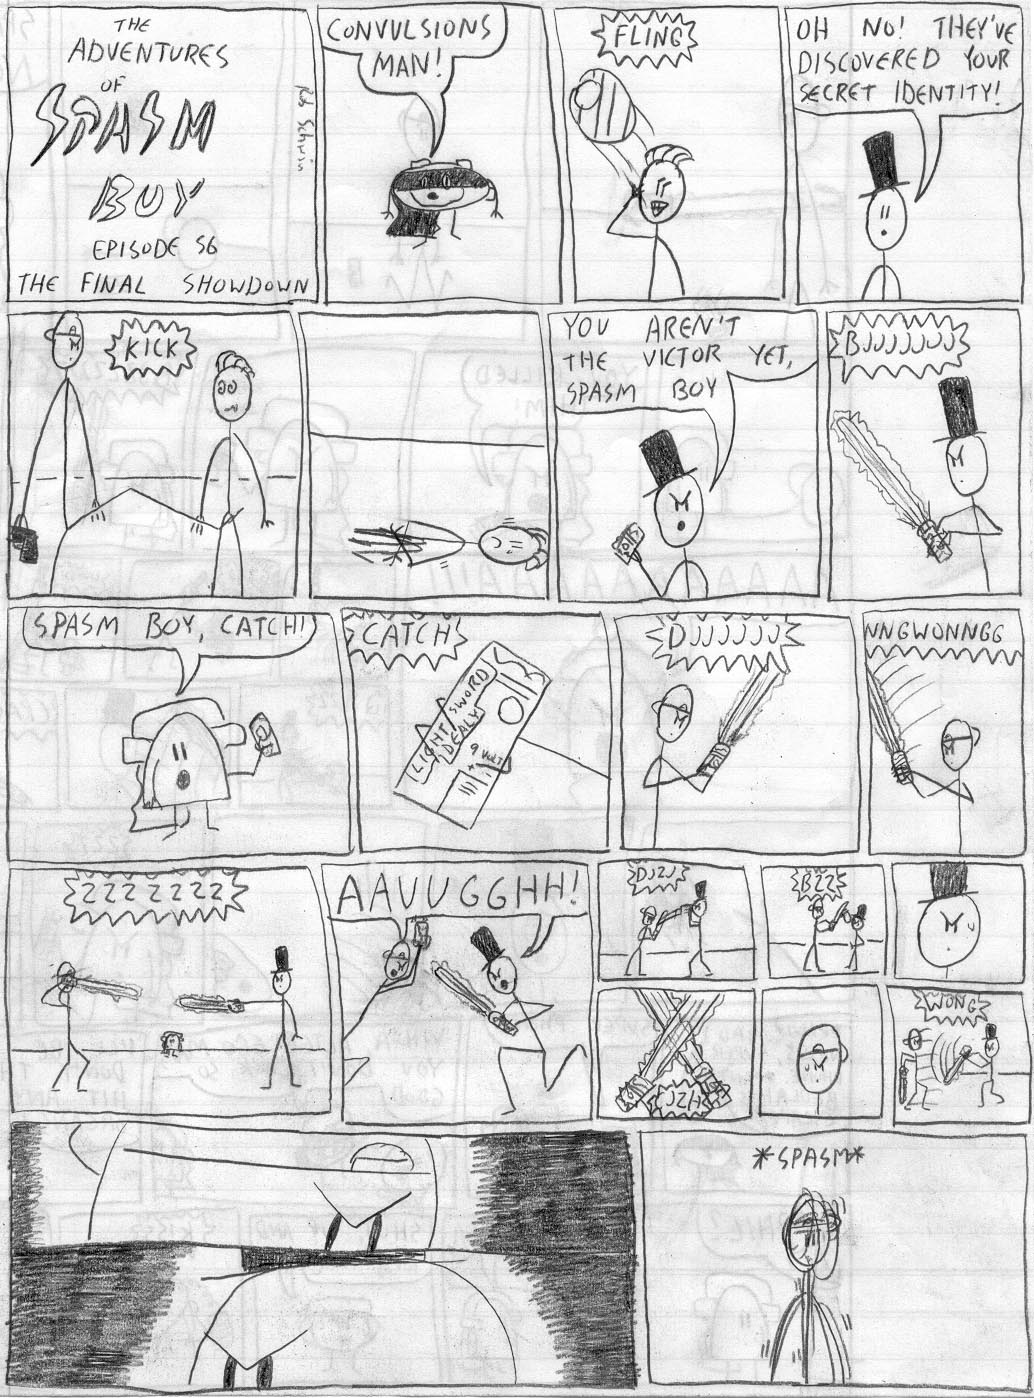 THE
ADVENTURES
OF
SPASM
BOY
EPISODE 56
THE FINAL SHOWDOWN
CONVULSIONS
MAN!
FLING
OH NO! THEY'VE
DISCOVERED YOUR
SECRET IDENTITY!
KICK
YOU AREN'T
THE VICTOR YET,
SPASM BOY
BJJJJJJJ
SPASM BOY, CATCH!
CATCH
LIGHT SWORD
9 VOLT
DJJJJJJ
NNGWONNGG
ZZZZZZZ
AAUUGGHH!
DJZJ
BZZ
JZH
WONG
*SPASM*